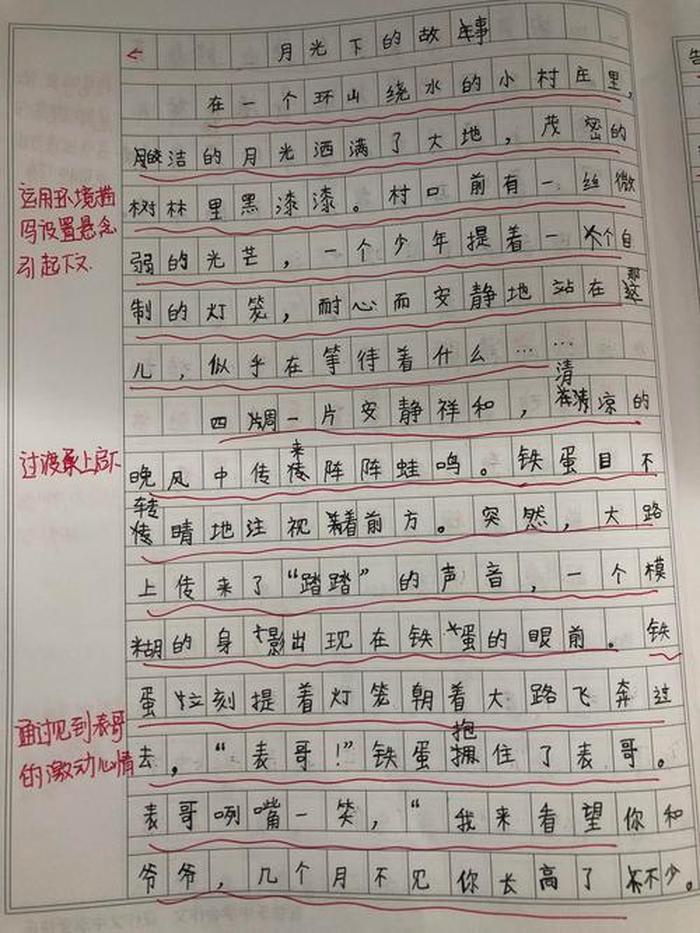 月光下的故事
在一个环山绕水的小村庄里，
皎洁的月光洒满了大地，茂密的
运用环境描
写设置悬念
引起下文
树林里黑漆漆。村口前有一丝微
弱的光芒，一个少年提着一个自
制的灯笼，耐心而安静地站在那
儿，似乎在等待着什么……
四周一片安静祥和，清凉的
过渡承上启下
晚风中传来阵阵蛙鸣。铁蛋目不
转睛地注视着前方。突然，大路
上传来了“踏踏”的声音，一个模
糊的身影出现在铁蛋的眼前。铁
蛋立刻提着灯笼朝着大路飞奔过
通过见到表哥
的激动心情
去，“表哥！”铁蛋抱住了表哥。
表哥咧嘴一笑，“我来看望你和
爷爷，几个月不见你长高了不少。